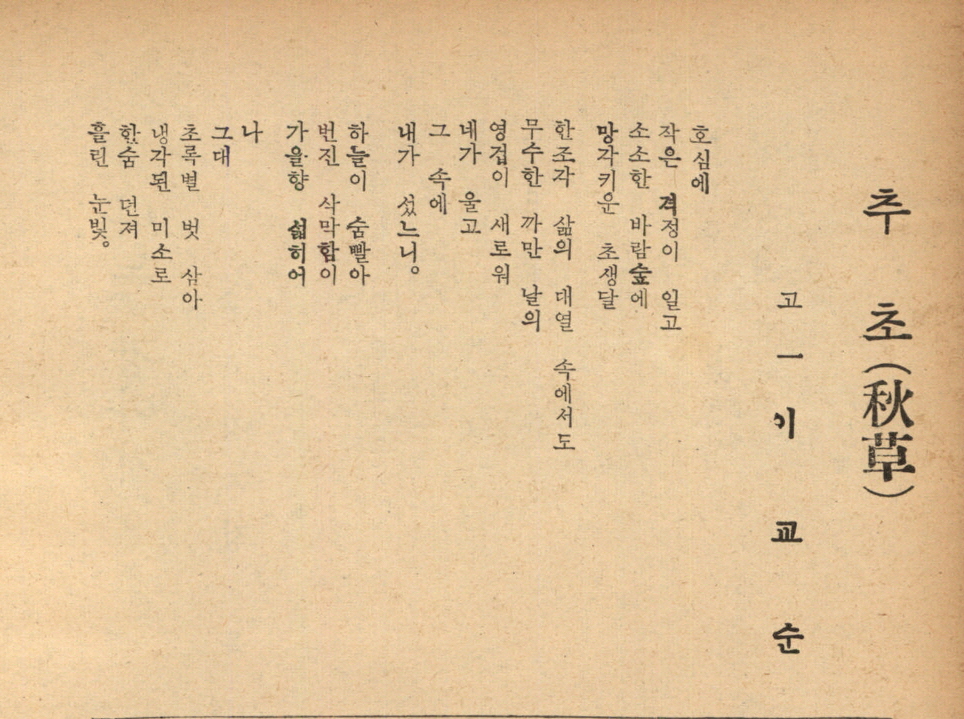 추초(秋草)
고一 이교순
호심에
작은 격정이 일고
소소한 바람숲에
망각키운 초생달
한조각 삶의 대열 속에서도
무수한 까만 날의
영겁이 새로워
네가 울고
그 속에
내가 섰느니。
하늘이 숨빨아
번진 삭막함이
가을향 섧히어
나
그대
초록별 벗 삼아
냉각된 미소로
한숨 던져
흘린 눈빛。